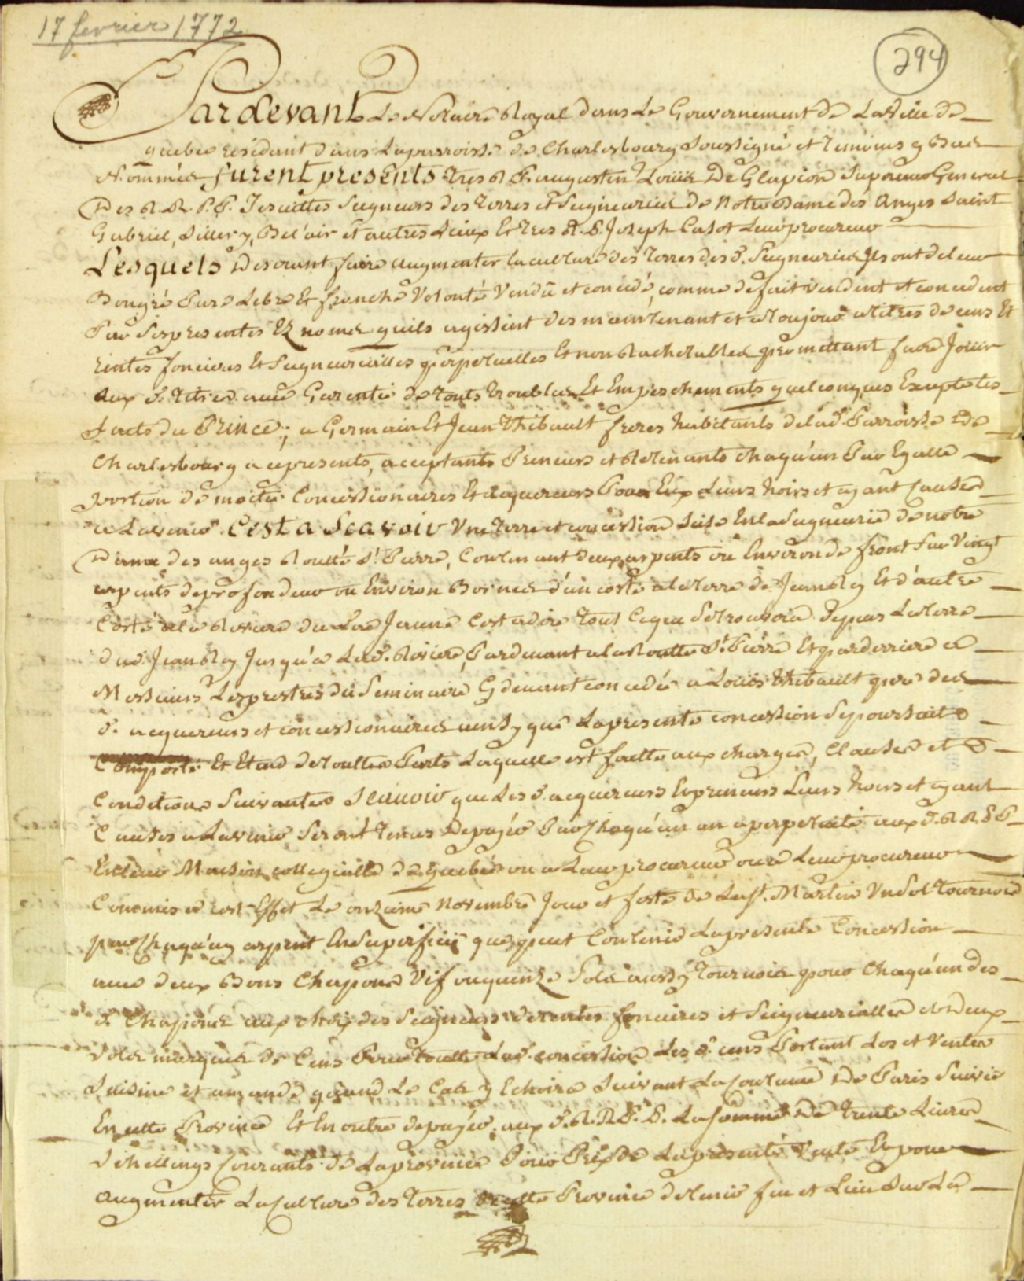 17 fevrier 1772
294
Pardevant Le Notaire Royal dans Le Gouvernement De La Ville De
quebec residant dans Laparroisse de Charlesbourg Soussigné et temoins y Bas
Nommés furent presents tres R. P. augustin Louis De Glapion Superieur General
Des R. R. P. P. Jesuittes Seigneurs des terres et Seigneuries de Notre Dame des Anges Saint
Gabriel, Sillery, Bel'air et autres Lieux Et tres R. P. Joseph Casot Leur procureur
Lesquels Desirant faire augmenter la culture des terres des d. Seigneuries Ils ont de leur
Bongré Pure Libre Et franche Volonté Vendu et concédé, comme de fait vendent et concedent
Par Ses presentes Es noms quils agissent des maintenant et a toujours a titres de cens Et
rentes foncieres Et Seigneurialles perpetuelles Et non Rachetables promettant faire Jouir
aux d. titres avec Garentie de touts troubles Et Empeschements quelconques Exceptés les
faits du Prince; a Germain Et Jean Thibault freres habitants de lad. Parroisse De
Charlesbourg a ce presents, acceptants Preneurs et Retenants Chaqu'un Par Egalle
portion de moitié Concessionaires Et acquereurs Pour Eux Leurs hoirs et ayant causes
a Lavenir C'est a Scavoir Une terre et concession Sise En la Seigneurie de notre
Dame des anges Routte St. Pierre, Contenant deux arpents ou Environ de front Sur Vingt
arpents de profondeur ou Environ Bornée d'un costé a la terre de Jean Roy Et d'autre
Costé a la Riviere du Lac Jaune C'est adire tout Ce qui Se trouvera Depuis La terre
dud. Jean Roy Jusqu'a Lad. Riviere, Pardevant a la Routte St. Pierre Et par derriere a
Messieurs Les prestres du Seminaire Cy devant concedée a Louis Thibault pere des
d. acquereurs et concessionaires ainsy que La presente concession Se poursuit &
Comporte Et Etend de touttes Parts Laquelle est faitte aux charges, Clauses et
Conditions Suivantes Scavoir que Les d. acquereurs Et preneurs Leurs hoirs et ayant
Causes a Lavenir Seront tenus De payer Par Chaqu'un an a perpetuité aux d. R. R. P. P.
En Leur Maison collegialle de Quebec ou a Leur procureur ou a Leur procureur
Commis a cet Effet Le onzieme Novembre Jour et feste de Sst. Martin Un Sol tournois
pour Chaqu'un arpent En Superficie que peut Contenir La presente Concession
avec deux Bons Chapons Vif ou quinze Sols aussy tournois pour Chaqu'un des
d. Chapons aux choix des Seigneurs de rentes foncieres et Seigneurialles et deux
de Cens Pour toutte Lad. concession Les d. cens Portant Lots et Ventes
Saisine et amande quand Le Cas y Echoira Suivant La Coutume De Paris Suivie
En cette Province Et En outre de payer, aux d. R. R. P. P. La Somme De trente Livres
Schellings Courants De La province Pour Prix De La presente Vente Et pour
augmenter La Culture des terres De cette Province fin et Lieu Sur La